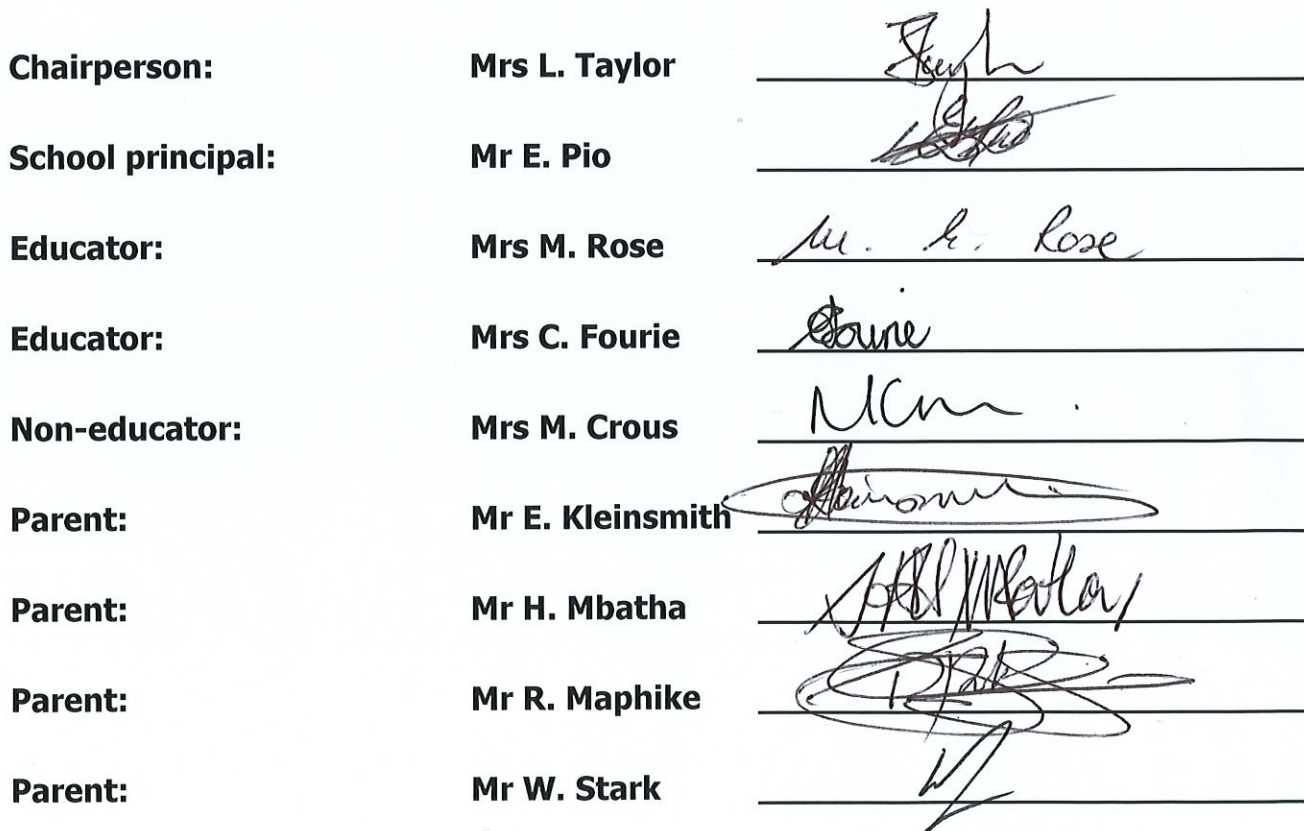 Chairperson: Mrs L. Taylor
School principal: Mr E. Pio
Educator: Mrs M. Rose M. E. Rose
Educator: Mrs C. Fourie Fourie
Non-educator: Mrs M. Crous
Parent: Mr E. Kleinsmith
Parent: Mr H. Mbatha
Parent: Mr R. Maphike
Parent: Mr W. Stark